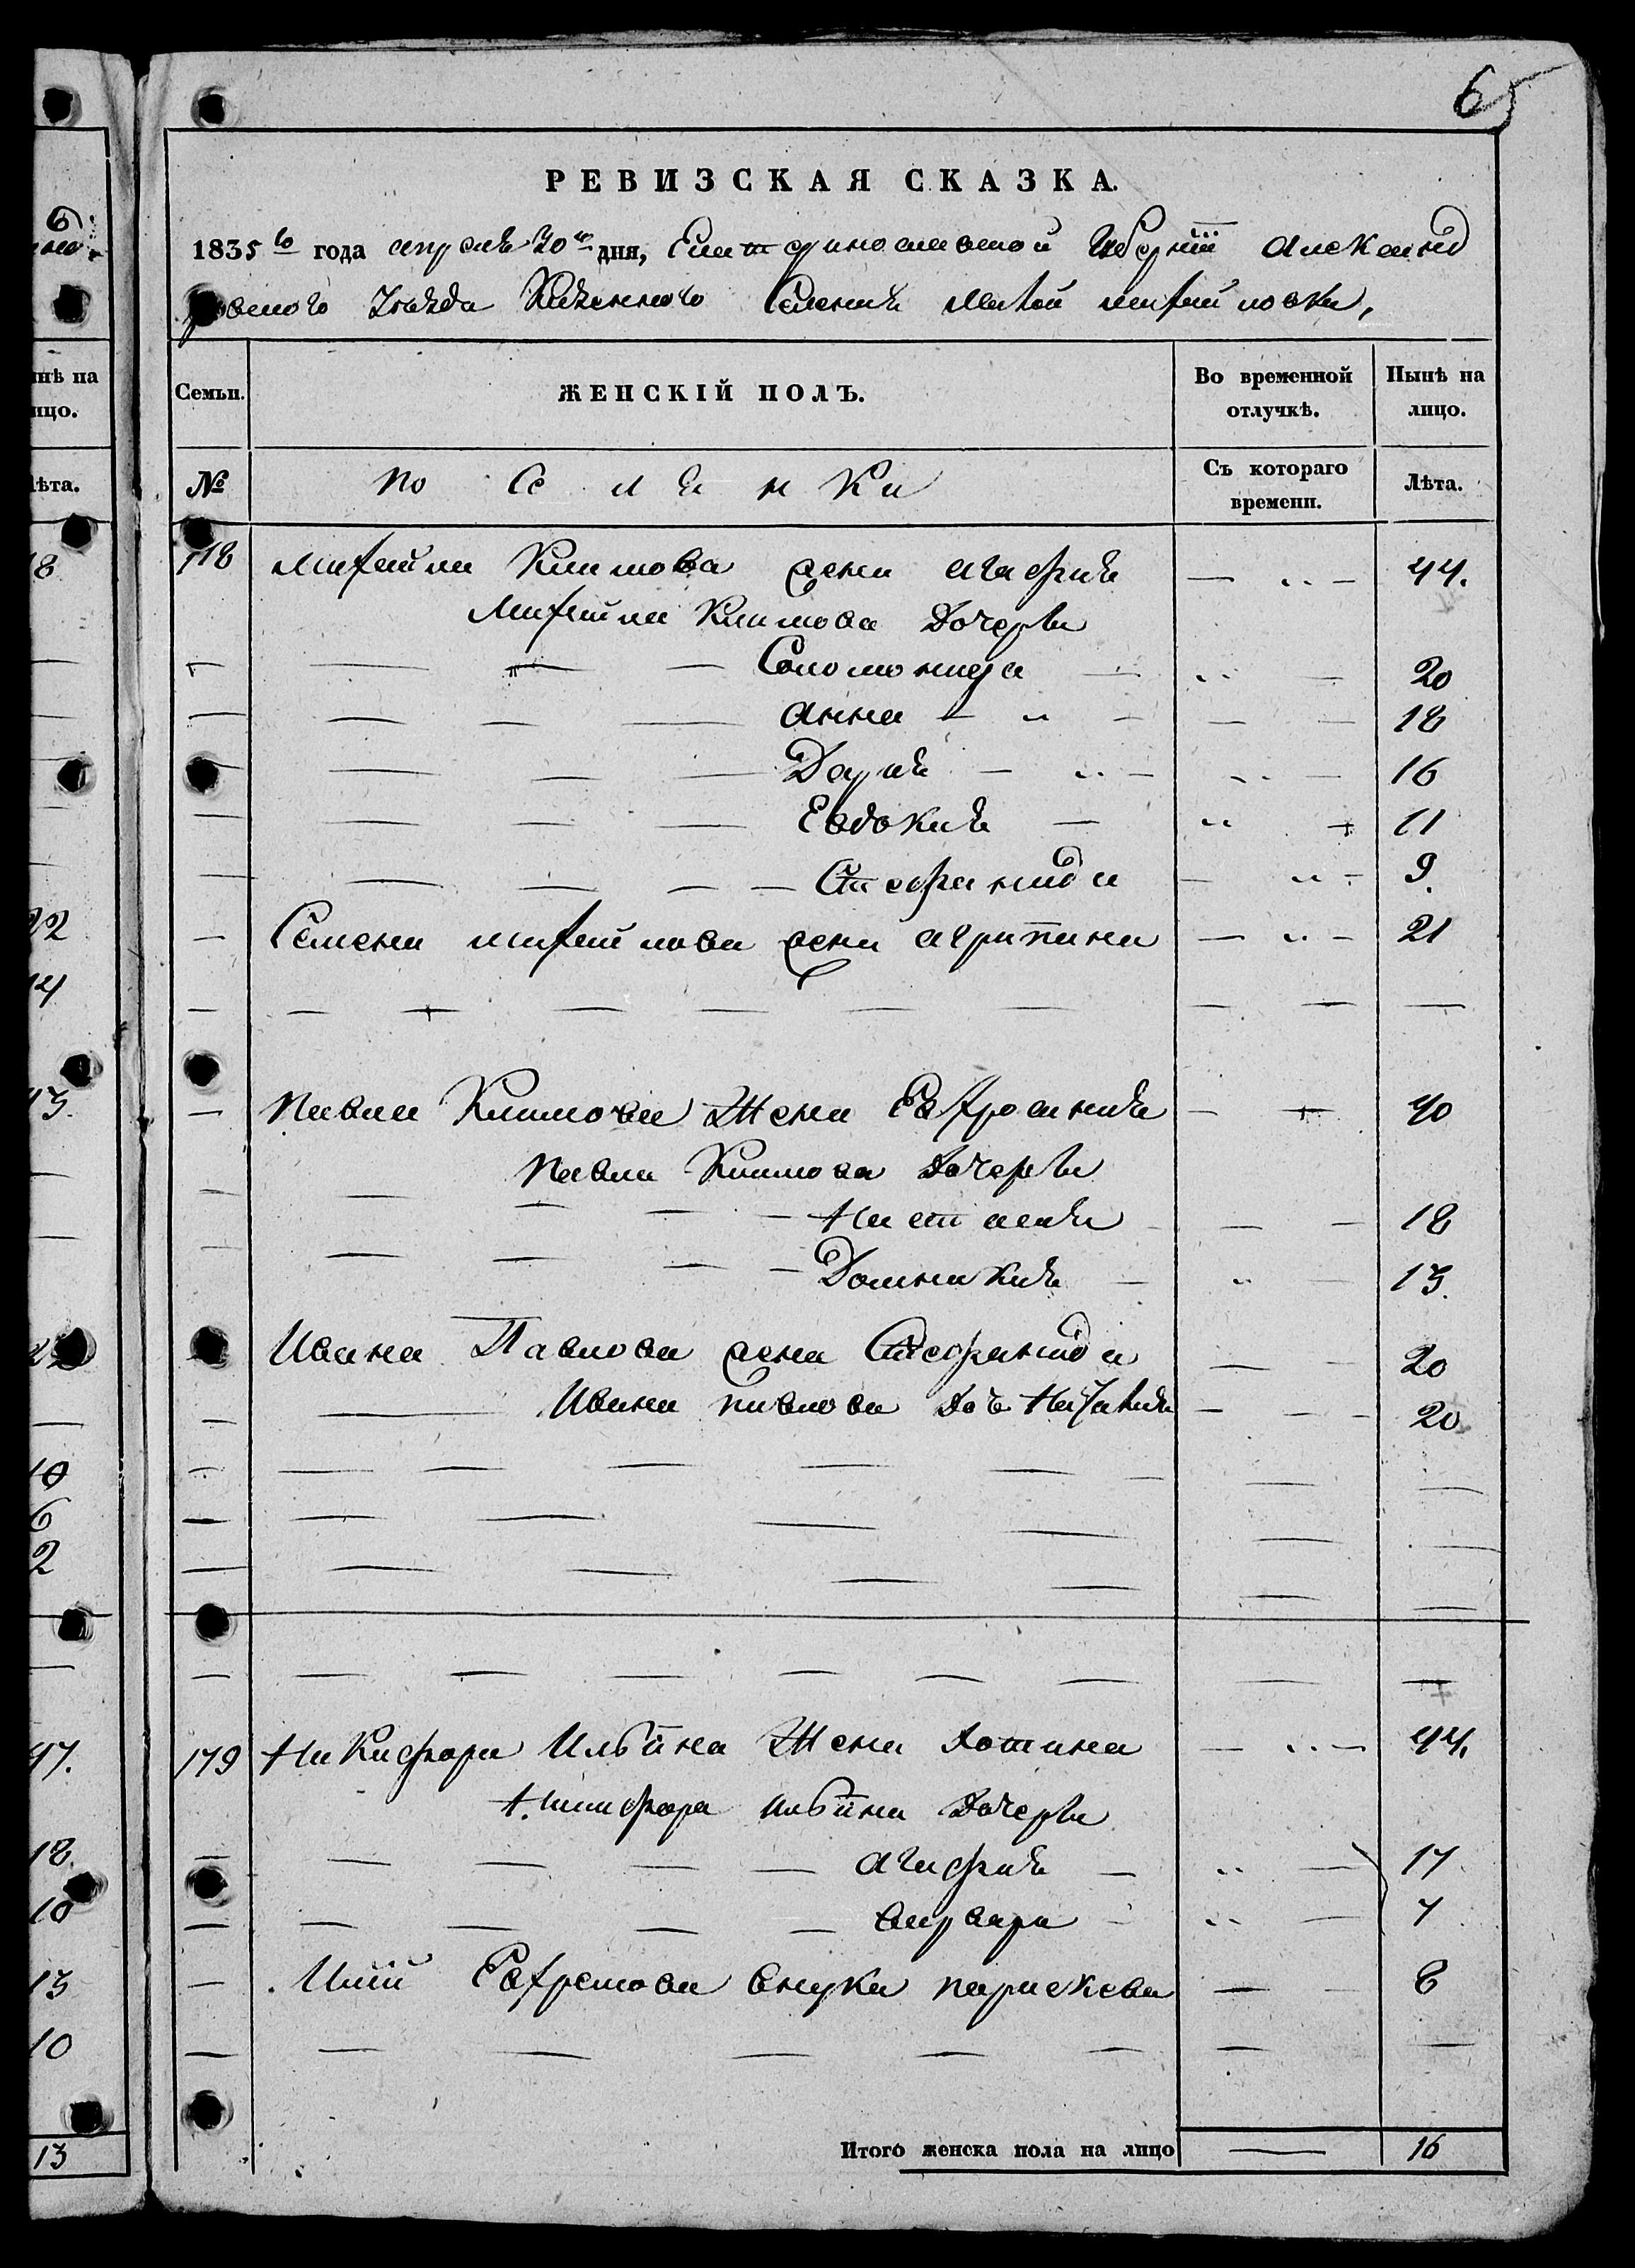 65
РЕВИЗСКАЯ СКАЗКА.
1835го года апрель 30го дня, Екатеринославской Губернїи Александ
ровского Уѣзда Казенного Селения Михайловки,
Семьи. ЖЕНСКІЙ ПОЛЪ. Во временной отлучкѣ. Нынѣ на лицо.
№ поселянки Съ котораго времени. Лѣта.
118 михайла Климова жена агафия 44.
Михайла Климова Дочери
Соломонида 20
анна 18
Дария 16
Евдокия 11
Стефанида 9.
Семена михайлова жена агрипина 21
павла Климова Жена Евфросиния 40
павла Климова Дочери
Настасия 18
Домникия 13.
Ивана Павлова жена Стефанида 20
Ивана павлова Дочь 20
179 Никифора Ильїна Жена 44.
Никифора ильїна Дочери
агафия 17
варвара 7
Ильї Ефремова внука параскева 8
Итого женска пола на лицо 16
нѣ на
ицо.
ѣта.
18
22
14
13.
10
6
2
47.
18.
10
13
10
13